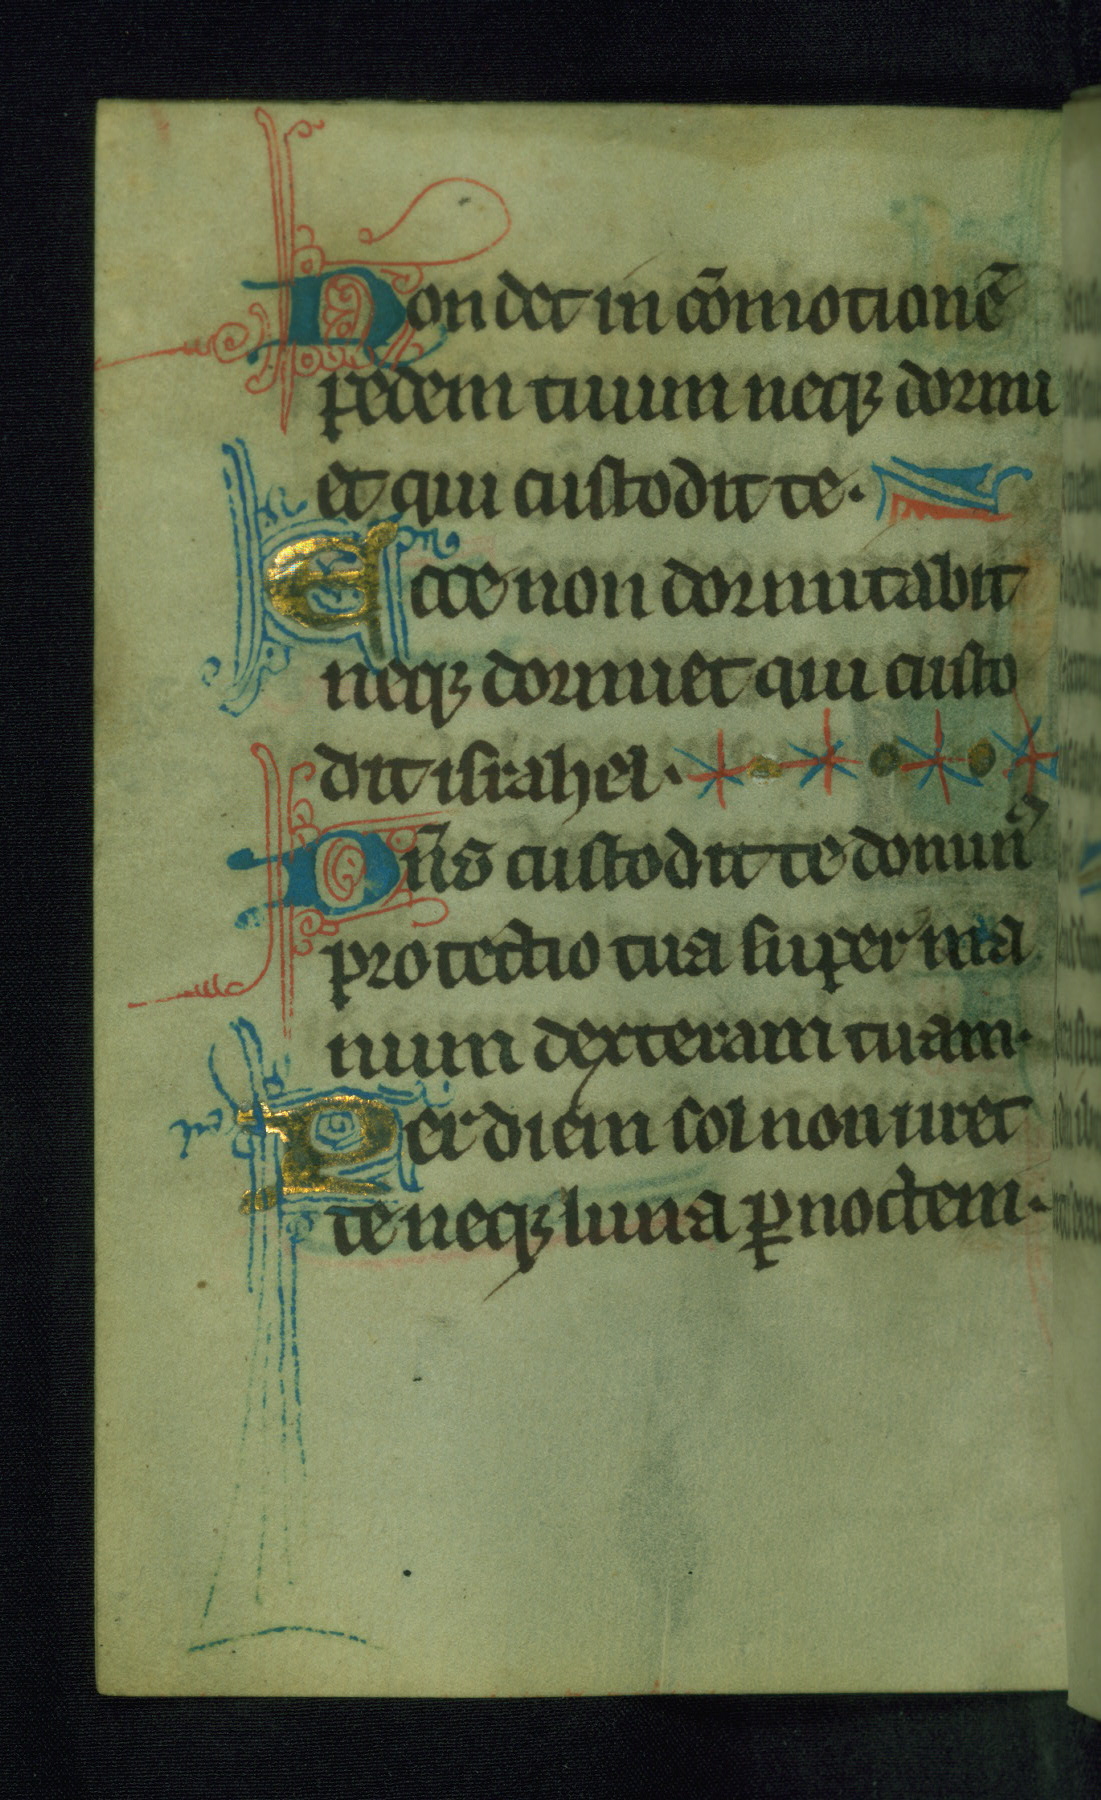 Non det in cōmotionē
pedem tuum neqꝫ dormi
et qui custodit te.
Ecce non dormitabit
neqꝫ dormiet qui custo
dit israhel.
Dn̄s custodit te domin᷒
protectio tua super ma
num dexteram tuam.
Per diem sol non uret
te neqꝫ luna ꝑ noctem.